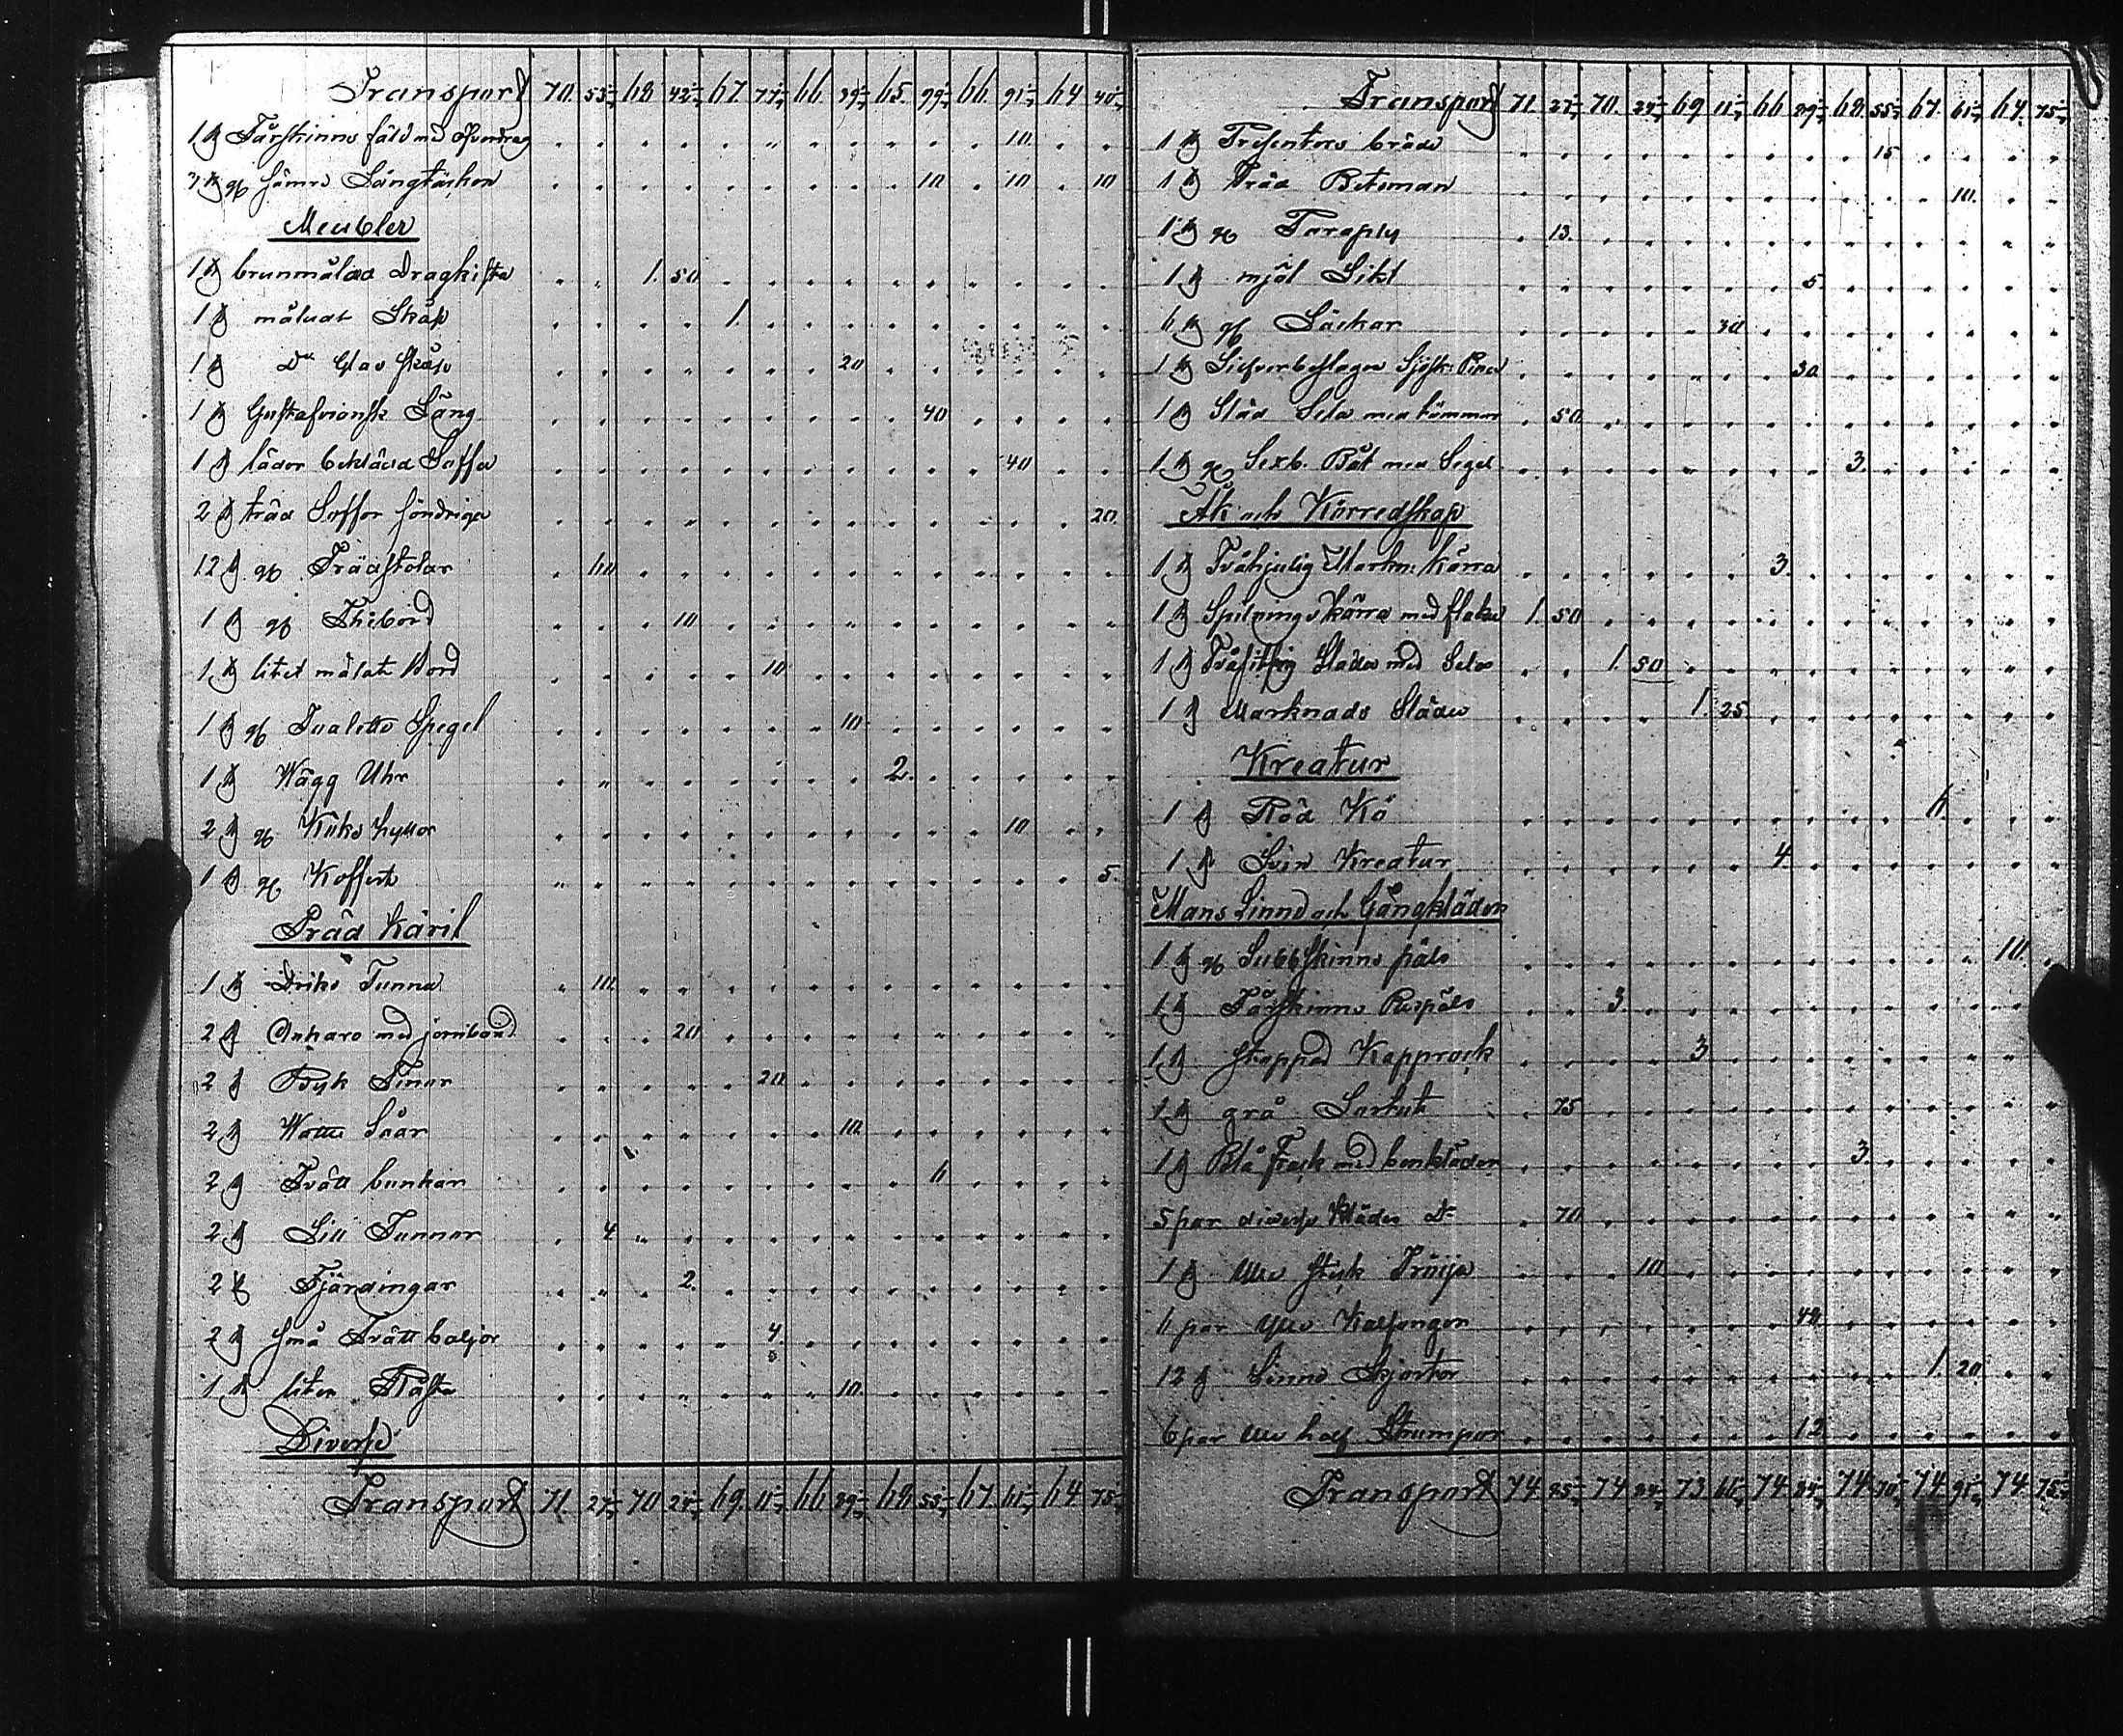 Transport 70. 55 68 42 67. 77 66. 39 65. 99 66. 91 64 40
1 st Fårskinns fäld med Öfverdrag 10.
3 st gl sämre Sängtäcken 10 10 10
Meubler
1 st brunmålad Dragkista 1. 50
1 st måladt Skåp 1.
1 st Do Glas skåp 20
1 st Gustafviansk Säng 40
1 st läder beklädd Soffa 40
2 st träd Soffor söndriga 20.
12 st gl Trädstolar 60
1 st gl Thébord 10
1 st litet målat Bord 10
1 st gl Tualetts Spegel 10
1 st Wägg Uhr 2.
2 st gl Köks hyllor 10
1 st gl Koffert 5.
Träd Käril
1 st Driks Tunna 10
2 st Ankare med jernband 20
2 st Byk Tinar 20
2 st Watten Såar 10
2 st Tvätt bunkar 6
2 st Sill Tunnor 4
2 st Fjärdingar 2.
2 st små Tvätt baljor 4
1 st liten Flaska 10.
Diverse
Transport 71. 27 70 24 69. 11 66 89 68 55 67. 61 64 75
Transport 71. 27 70. 24 69 11 66 89 68. 55 67. 61 64. 75
1 st Presenter bräde 15
1 st Träd Betsman 10.
1 st gl Paraply 13.
1 st mjöl Sikt 5.
6 st gl Säckar 30
1 st Silfverbeslagen Sjösk: Pipa 30
1 st Släd Sela med tömmar 50
1 st gl Sexb. Båt med Segel 3.
Åk och Körredskap
1 st Tvåhjulig Markn: Kärra 3.
1 st Spilnings kärra med flake 1. 50
1 st Tvåsittsig Släda med Sela 1. 50
1 st Marknads Släde 1. 25
Kreatur
1 st Röd Ko 6
1 st Svin Kreatur 4.
Mans Linne och Gångkläder
1 st gl Subbskinns päls 10.
1 st Fårskinns Respäls 3.
1 st stoppad Kapprock 3
1 st grå Surtut 75
1 st Blå Frack med benkläder 3.
5 par diverse Kläder Do 70
1 st Ulle styk Tröija 10
6 par Ylle Kalsonger 48
12 st Linne Skjortor 1. 20
6 par Ulle half Strumpor 12
Transport 74. 25 74 84 73 66 74 84 74. 70 74. 95 74. 75